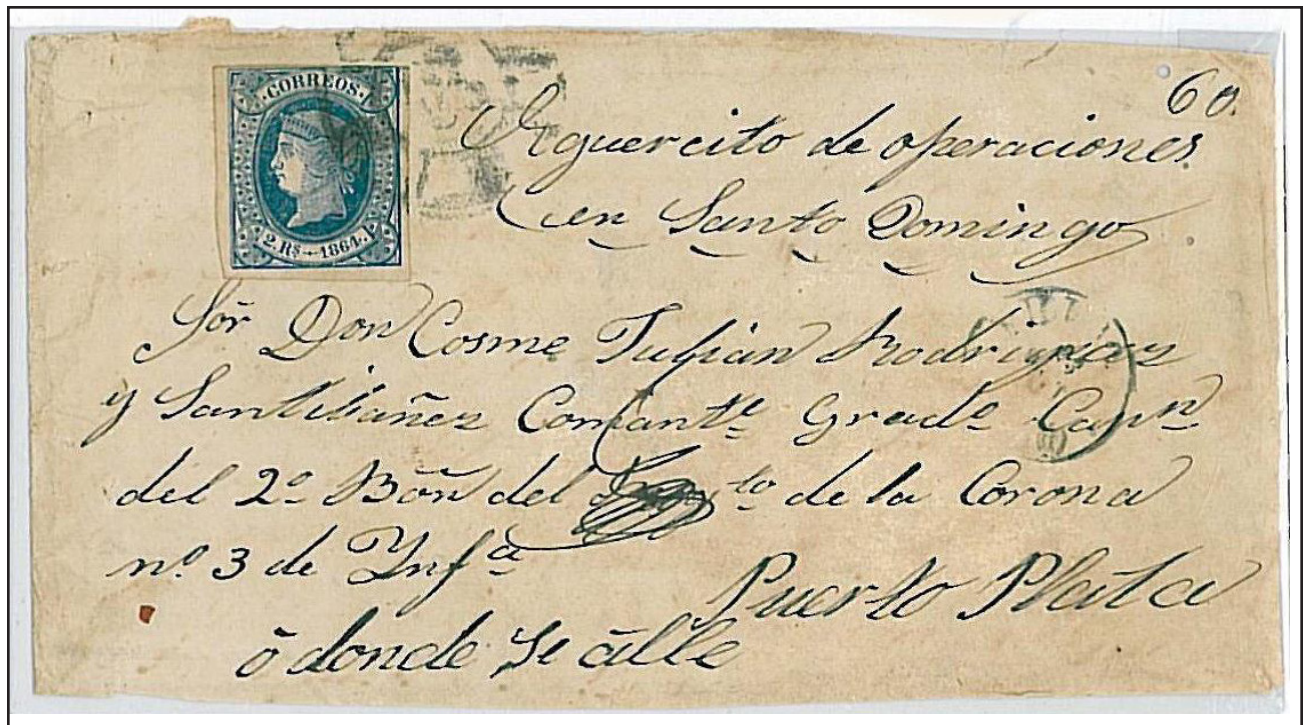 CORREOS.
2 Rs - 1864.
60.
Eguercito de operaciones
en Santo Domingo
Sōr Don Cosme Julian Rodriguez
y Santibañez Comante Gradº Capn
del 2º Bōn del to de la Corona
nº 3 de Ynfa
Puerto Plata
ō donde se ālle